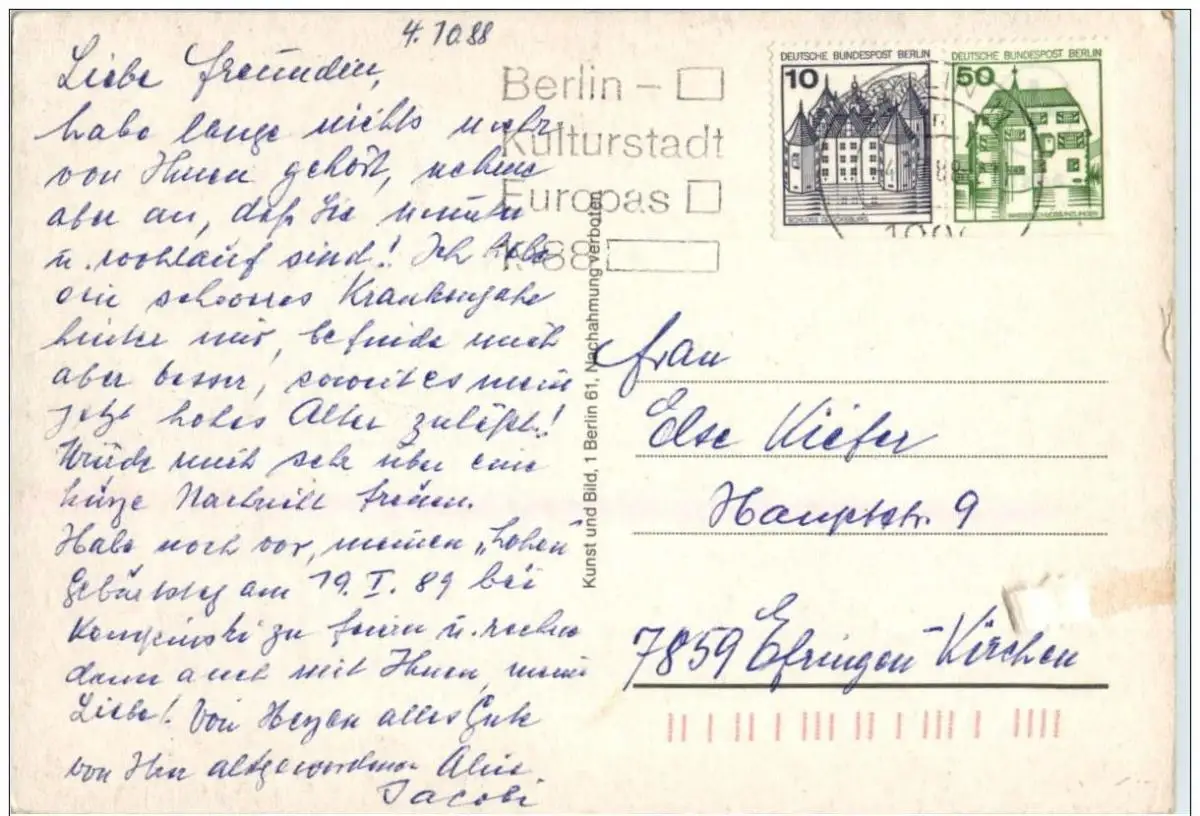 4.10.88
Liebe Freundin,
habe lange nichts mehr
von Ihnen gehört, nehme
aber an, daß Sie munter
u. wohlauf sind! Ich habe
ein schweres Krankenjahr
hinter mir, befinde mich
aber besser, soweit es mein
jetzt hohes Alter zuläßt!
Würde mich sehr über eine
kurze Nachricht freuen.
Habe noch vor, meinen "hohen"
Geburtstag am 19. I. 89 bei
Kempinski zu feiern u. rechne
dann auch mit Ihnen, meine
Liebe! Von Herzen alles Gute
von Ihrer altgewordenen
Jacobi
Berlin –
Kulturstadt
Europas
1988
DEUTSCHE BUNDESPOST BERLIN
10
SCHLOSS GLÜCKSBURG
DEUTSCHE BUNDESPOST BERLIN
50
WASSERSCHLOSS INZLINGEN
Kunst und Bild, 1 Berlin 61, Nachahmung verboten
Frau
Else Kiefer
Hauptstr. 9
7859 Efringen-Kirchen